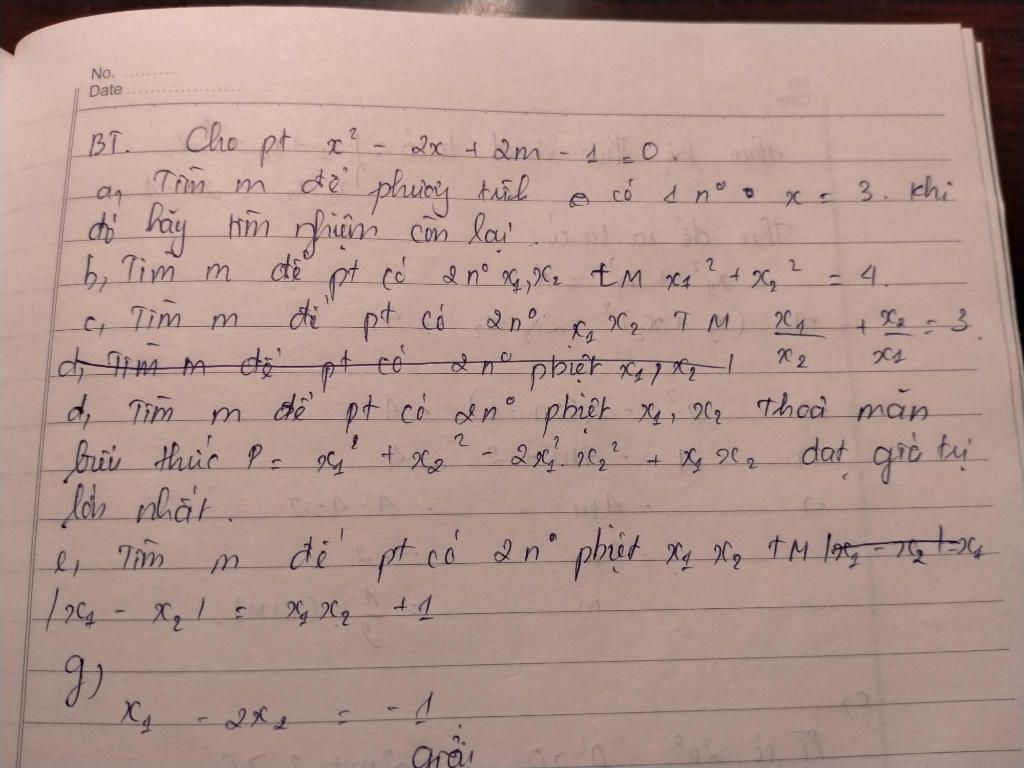 No. ..........
Date ....................
BT. Cho pt x² - 2x + 2m - 1 = 0
a, Tìm m để phương trình có 1 n° x = 3. khi
đó hãy tìm nghiệm còn lại.
b, Tìm m để pt có 2n° x₁, x₂ tM x₁² + x₂² = 4.
c, Tìm m để pt có 2n° x₁ x₂ TM x₁/x₂ + x₂/x₁ = 3.
d, Tìm m để pt có 2n° phbiệt x₁, x₂
d, Tìm m để pt có 2n° pbiệt x₁, x₂ thoả mãn
biểu thức P = x₁² + x₂² - 2x₁².x₂² + x₁x₂ đạt giá trị
lớn nhất.
e, Tìm m để pt có 2n° pbiệt x₁ x₂ tM |x₁ - x₂| = x₁
|x₁ - x₂| = x₁x₂ + 1
g)
x₁ - 2x₂ = -1.
Giải